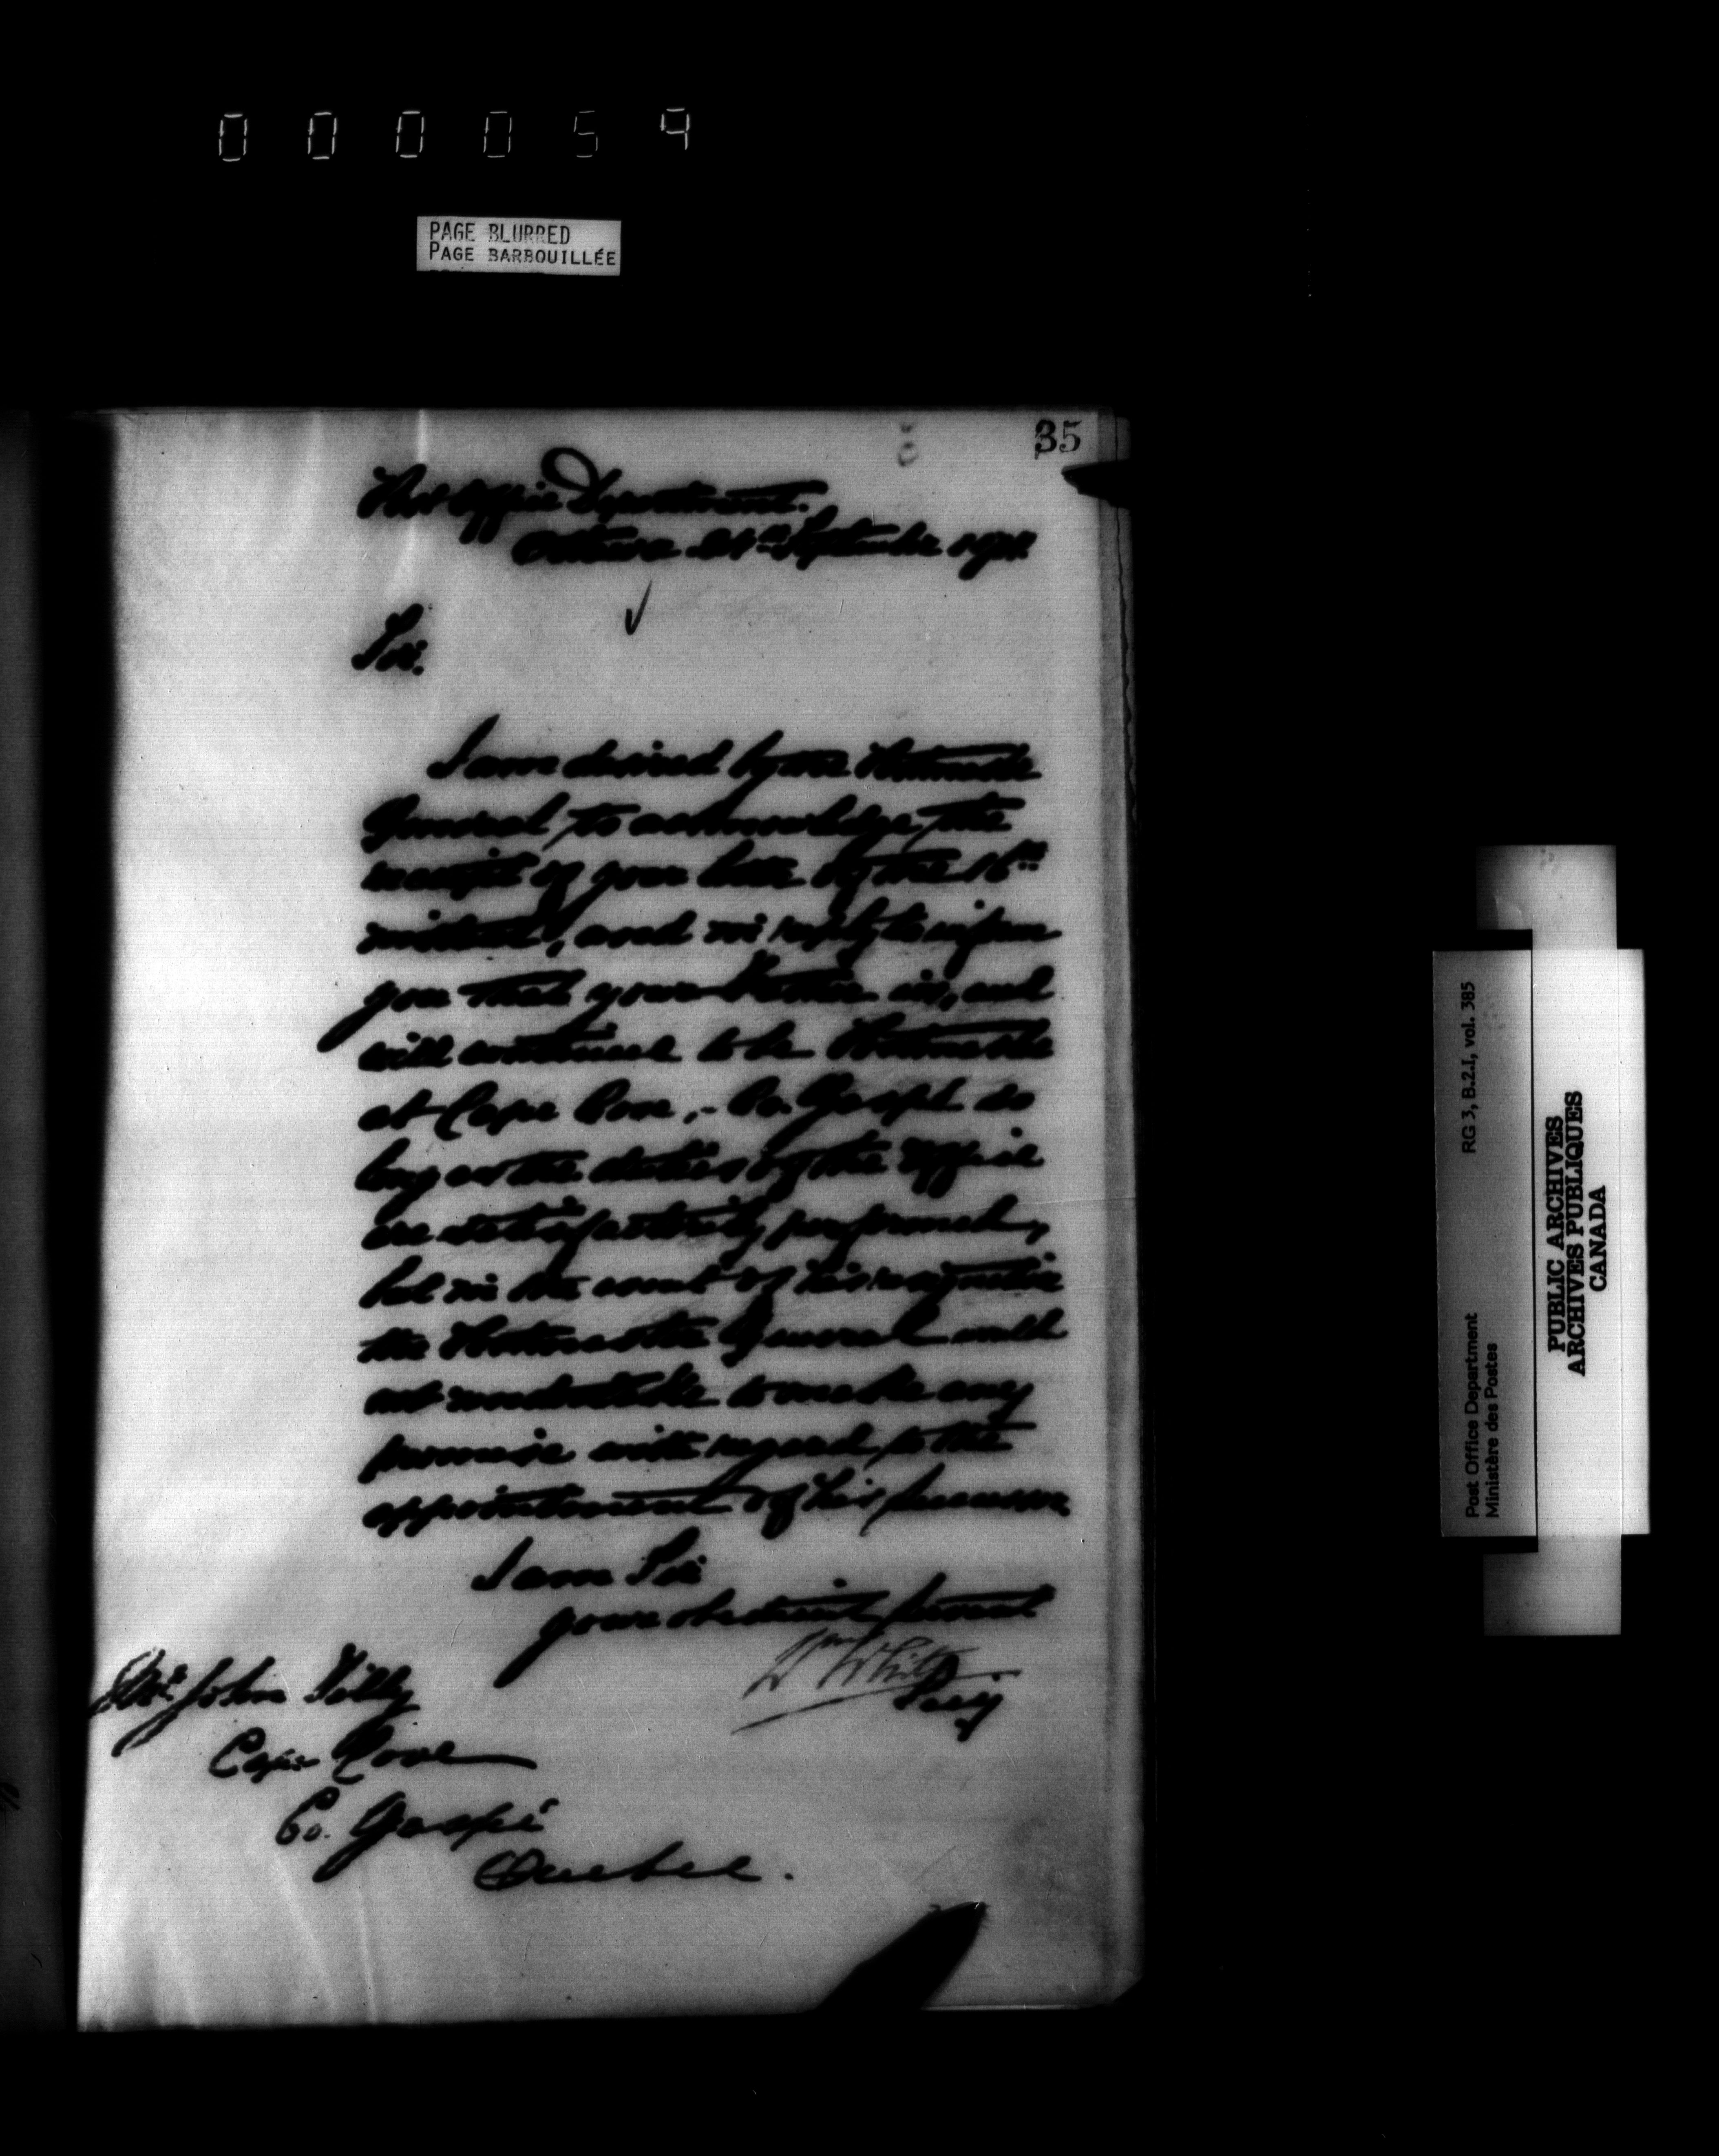 000059
PAGE BLURRED
PAGE BARBOUILLÉE
35
Post Office Department.
Ottawa September
Sir.
I am desired by the Postmaster
General to acknowledge the
receipt of your letter of the 16th
instant, and in reply to inform
you that your Father is, and
will continue to be Postmaster
at Cape Cove, - Co. Gaspé so
long as the duties of the Office
are satisfactorily performed,
but in the event of his resignation
the Postmaster General could
not undertake to make any
promise with regard to the
appointment of his successor.
I am Sir
your obedient servant
Wm White
Secy
Mr John Tilly
Cape Cove
Co. Gaspé
Quebec.
Post Office Department RG 3, B.2.I, vol. 385
Ministère des Postes
PUBLIC ARCHIVES
ARCHIVES PUBLIQUES
CANADA